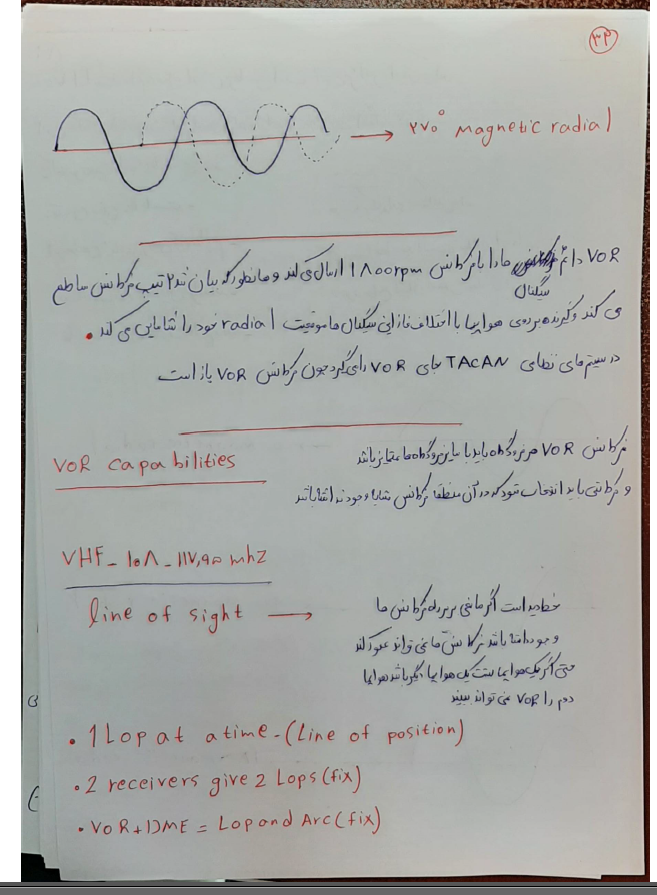 ۳۴
۲۷۰° magnetic radial
VOR دائم سیگنال ها را با فرکانس 1800rpm ارسال می کند و همانطور که بیان شد ۲ تیپ فرکانس ساطع
می کند و گیرنده بر روی هواپیما با اختلاف فاز این سیگنال ها موقعیت radial خود را شناسایی می کند .
در سیستم های نظامی TACAN جای VOR را می گیرد چون فرکانس VOR باز است
VOR capabilities
فرکانس VOR هر فرودگاه باید با سایر فرودگاه ها متمایز باشد
و فرکانسی باید انتخاب شود که در آن منطقه فرکانس مشابه وجود نداشته باشد
VHF - ۱۰۸ - ۱۱۷,۹۵ mhz
line of sight
خط دید است اگر مانعی بر سر راه فرکانس ها
وجود داشته باشد فرکانس ها نمی تواند عبور کند
حتی اگر یک هواپیما پشت یک هواپیما دیگر باشد هواپیما
دوم را VOR نمی تواند ببیند
• 1 Lop at a time - (Line of position)
• 2 receivers give 2 Lops (fix)
• VOR + DME = Lop and Arc (fix)